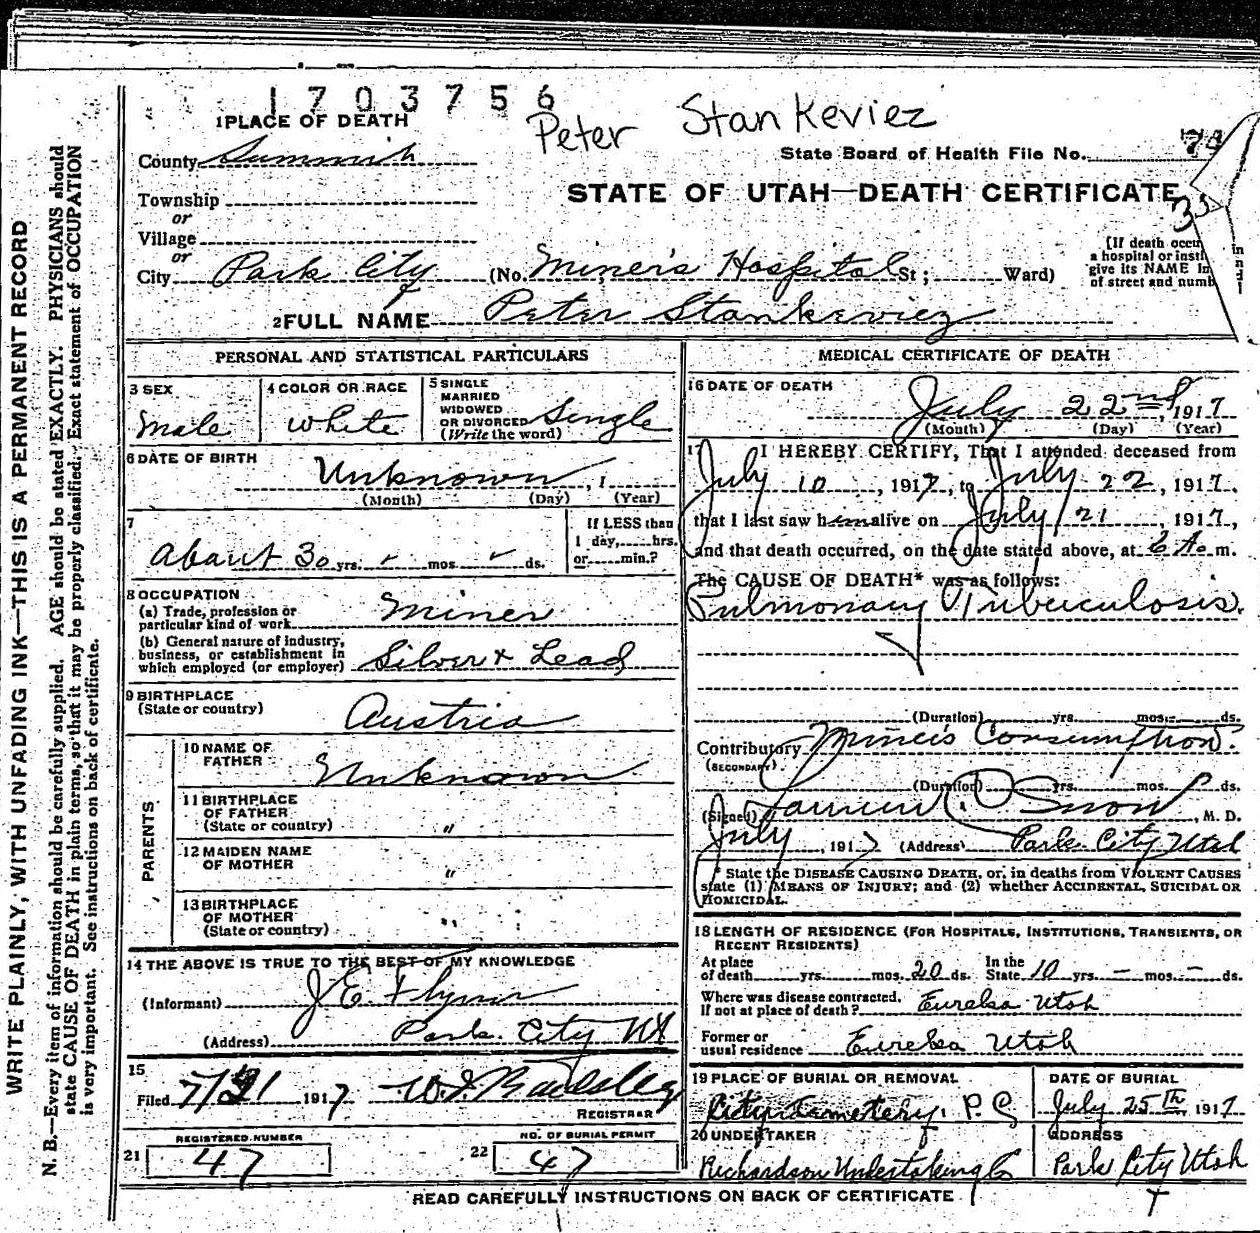 1703756
Peter Stankeviez
1 PLACE OF DEATH
County Summit
State Board of Health File No. 78
STATE OF UTAH—DEATH CERTIFICATE
35
Township
or
Village
or
City Park City (No. Miner's Hospital St; Ward)
[If death occu
a hospital or insti
give its NAME in
of street and numb
2 FULL NAME Peter Stankeviez
PERSONAL AND STATISTICAL PARTICULARS
3 SEX
Male
4 COLOR OR RACE
White
5 SINGLE
MARRIED
WIDOWED
OR DIVORCED
(Write the word)
Single
6 DATE OF BIRTH
Unknown, 1
(Month) (Day) (Year)
7
About 30 yrs. - mos. - ds.
If LESS than
1 day, hrs.
or min.?
8 OCCUPATION
(a) Trade, profession or
particular kind of work Miner
(b) General nature of industry,
business, or establishment in
which employed (or employer) Silver & Lead
9 BIRTHPLACE
(State or country)
Austria
PARENTS
10 NAME OF
FATHER
Unknown
11 BIRTHPLACE
OF FATHER
(State or country) "
12 MAIDEN NAME
OF MOTHER "
13 BIRTHPLACE
OF MOTHER
(State or country) "
14 THE ABOVE IS TRUE TO THE BEST OF MY KNOWLEDGE
(Informant) J E Flynn
(Address) Park City Ut
15
Filed 7/21 1917
REGISTRAR
REGISTERED NUMBER
21 47
NO. OF BURIAL PERMIT
22 47
MEDICAL CERTIFICATE OF DEATH
16 DATE OF DEATH
July 22nd 1917
(Month) (Day) (Year)
17 I HEREBY CERTIFY, That I attended deceased from
July 10, 1917, to July 22, 1917,
that I last saw him alive on July 21, 1917,
and that death occurred, on the date stated above, at 6 A. m.
The CAUSE OF DEATH* was as follows:
Pulmonary Tuberculosis.
(Duration) yrs. mos. ds.
Contributory Miner's Consumption.
(SECONDARY)
(Duration) yrs. mos. ds.
(Signed) Snow, M. D.
July, 1917 (Address) Park City Utah
* State the DISEASE CAUSING DEATH, or, in deaths from VIOLENT CAUSES
state (1) MEANS OF INJURY; and (2) whether ACCIDENTAL, SUICIDAL OR
HOMICIDAL.
18 LENGTH OF RESIDENCE (FOR HOSPITALS, INSTITUTIONS, TRANSIENTS, OR
RECENT RESIDENTS)
At place
of death yrs. mos. 20 ds.
In the
State 10 yrs. - mos. - ds.
Where was disease contracted,
If not at place of death? Eureka Utah
Former or
usual residence Eureka Utah
19 PLACE OF BURIAL OR REMOVAL
City Cemetery. P. C.
DATE OF BURIAL
July 25th, 1917
20 UNDERTAKER
Richardson Undertaking Co
ADDRESS
Park City Utah
READ CAREFULLY INSTRUCTIONS ON BACK OF CERTIFICATE
WRITE PLAINLY, WITH UNFADING INK—THIS IS A PERMANENT RECORD
N. B.—Every item of information should be carefully supplied. AGE should be stated EXACTLY. PHYSICIANS should
state CAUSE OF DEATH in plain terms, so that it may be properly classified. Exact statement of OCCUPATION
is very important. See instructions on back of certificate.